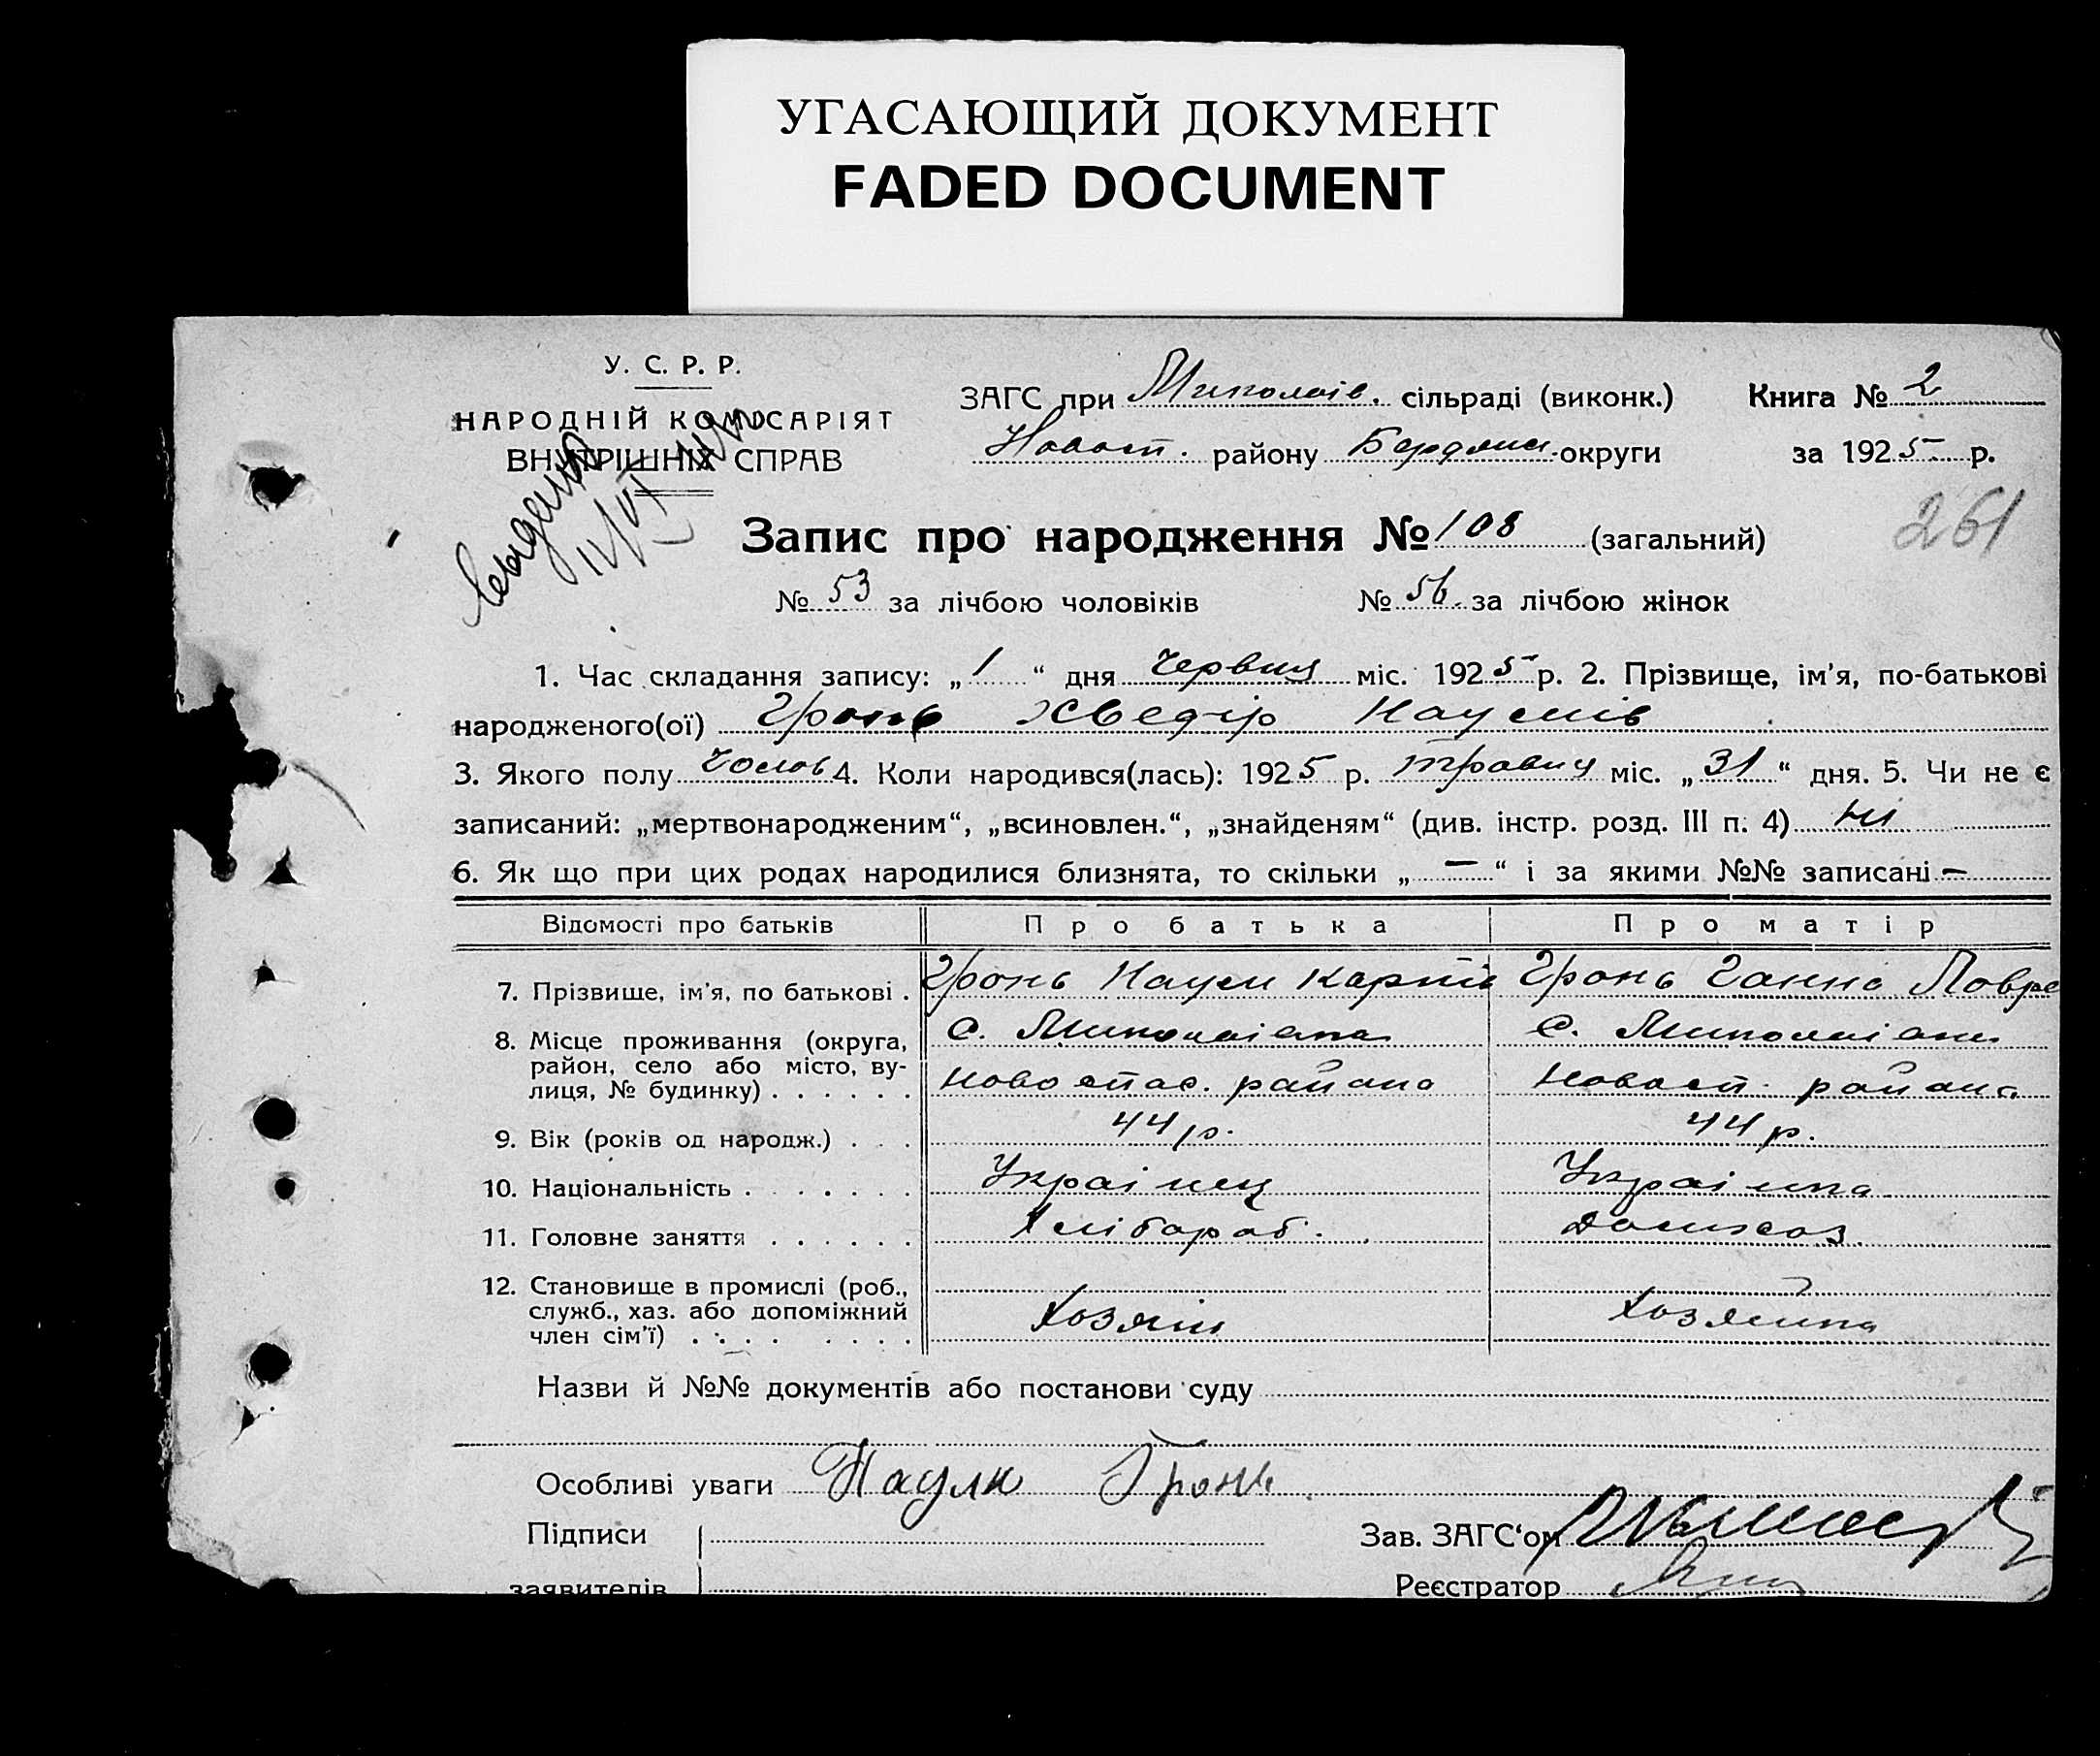 УГАСАЮЩИЙ ДОКУМЕНТ
FADED DOCUMENT
У. С. Р. Р.
НАРОДНІЙ КОМІСАРІЯТ
ВНУТРІШНІХ СПРАВ
ЗАГС при Миколаів. сільраді (виконк.) Книга № 2
Новосп. району Бердянськ. округи за 1925 р.
261
Запис про народження № 108 (загальний)
№ 53 за лічбою чоловіків № 56. за лічбою жінок
1. Час складання запису: „1“ дня червня міс. 1925 р. 2. Прізвище, ім'я, по-батькові
народженого(ої) Гронь Хведір Наумів
3. Якого полу Чолов 4. Коли народився(лась): 1925 р. травня міс. „31“ дня. 5. Чи не є
записаний: „мертвонародженим“, „всиновлен.“, „знайденям“ (див. інстр. розд. III п. 4) ні
6. Як що при цих родах народилися близнята, то скільки „—“ і за якими №№ записані —
Відомості про батьків Про батька Про матір
7. Прізвище, ім'я, по батькові . Гронь Наум Карпів Гронь Ганна Лавре
8. Місце проживання (округа, с. Миколаівка с. Миколаівки
район, село або місто, ву-
лиця, № будинку) . . . . . . Новоспас. района Новосп. района
9. Вік (років од народж.) . . . 44 р. 44 р.
10. Національність . . . . . . . Украінец Украінка
11. Головне заняття . . . . . . Хлібороб. Домхоз.
12. Становище в промислі (роб.,
служб., хаз. або допоміжний Хозяін Хозяйка
член сім'ї) . . . . . . . .
Назви й №№ документів або постанови суду
Особливі уваги Наум Гронь
Підписи Зав. ЗАГС'ом
заявителів Реєстратор